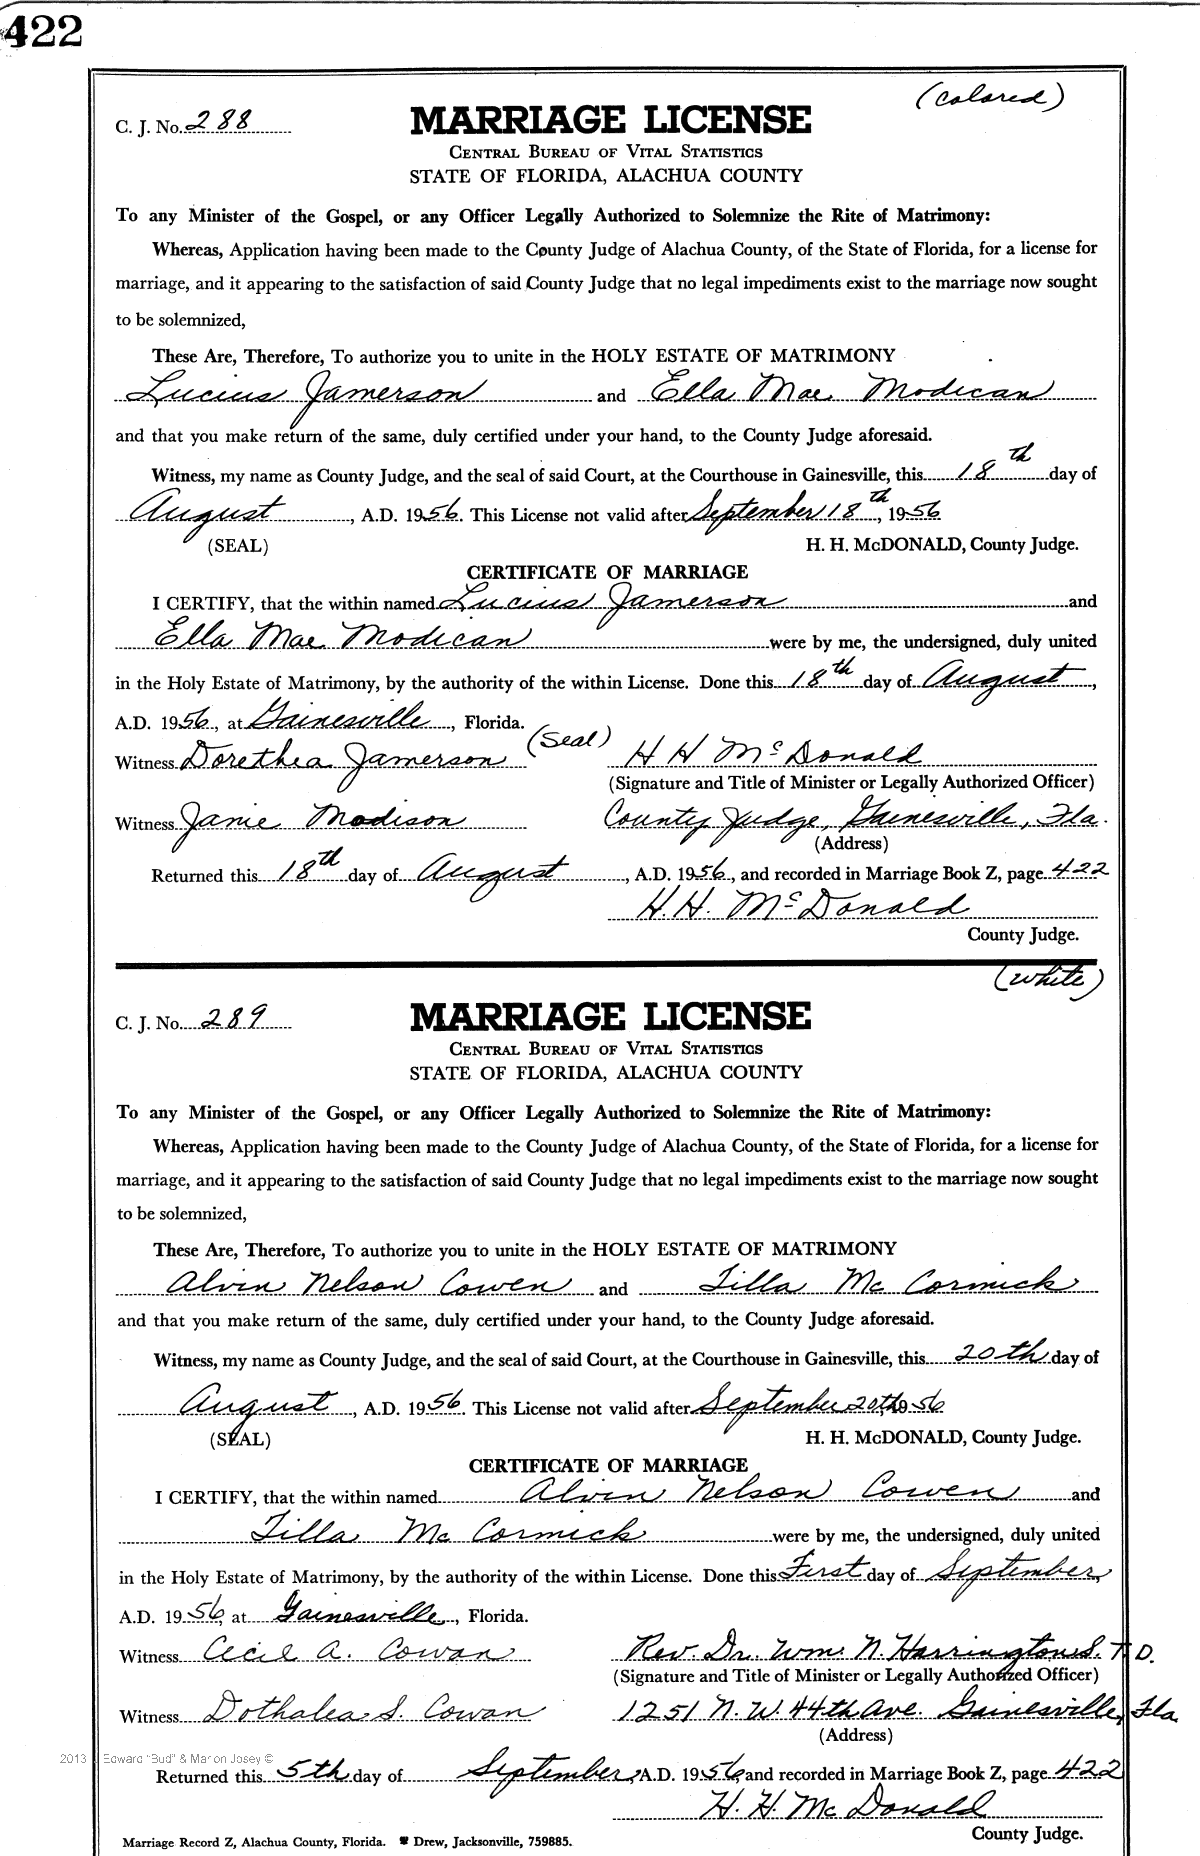 422
(colored)
C. J. No. 288 MARRIAGE LICENSE
CENTRAL BUREAU OF VITAL STATISTICS
STATE OF FLORIDA, ALACHUA COUNTY
To any Minister of the Gospel, or any Officer Legally Authorized to Solemnize the Rite of Matrimony:
Whereas, Application having been made to the County Judge of Alachua County, of the State of Florida, for a license for
marriage, and it appearing to the satisfaction of said County Judge that no legal impediments exist to the marriage now sought
to be solemnized,
These Are, Therefore, To authorize you to unite in the HOLY ESTATE OF MATRIMONY
Lucius Jamerson and Ella Mae Modican
and that you make return of the same, duly certified under your hand, to the County Judge aforesaid.
Witness, my name as County Judge, and the seal of said Court, at the Courthouse in Gainesville, this 18th day of
August, A.D. 1956. This License not valid after September 18th, 1956
(SEAL) H. H. McDONALD, County Judge.
CERTIFICATE OF MARRIAGE
I CERTIFY, that the within named Lucius Jamerson and
Ella Mae Modican were by me, the undersigned, duly united
in the Holy Estate of Matrimony, by the authority of the within License. Done this 18th day of August,
A.D. 1956, at Gainesville, Florida.
(Seal)
Witness Dorethea Jamerson H H McDonald
(Signature and Title of Minister or Legally Authorized Officer)
Witness Janie Modison County Judge, Gainesville, Fla.
(Address)
Returned this 18th day of August, A.D. 1956, and recorded in Marriage Book Z, page 422
H. H. McDonald
County Judge.
(white)
C. J. No. 289 MARRIAGE LICENSE
CENTRAL BUREAU OF VITAL STATISTICS
STATE OF FLORIDA, ALACHUA COUNTY
To any Minister of the Gospel, or any Officer Legally Authorized to Solemnize the Rite of Matrimony:
Whereas, Application having been made to the County Judge of Alachua County, of the State of Florida, for a license for
marriage, and it appearing to the satisfaction of said County Judge that no legal impediments exist to the marriage now sought
to be solemnized,
These Are, Therefore, To authorize you to unite in the HOLY ESTATE OF MATRIMONY
Alvin Nelson Cowen and Tilla Mc Cormick
and that you make return of the same, duly certified under your hand, to the County Judge aforesaid.
Witness, my name as County Judge, and the seal of said Court, at the Courthouse in Gainesville, this 20th day of
August, A.D. 1956. This License not valid after September 20th, 1956
(SEAL) H. H. McDONALD, County Judge.
CERTIFICATE OF MARRIAGE
I CERTIFY, that the within named Alvin Nelson Cowen and
Tilla Mc Cormick were by me, the undersigned, duly united
in the Holy Estate of Matrimony, by the authority of the within License. Done this First day of September,
A.D. 1956, at Gainesville, Florida.
Witness Cecil A. Cowan Rev. Dr. Wm. N. Harrington S. T. D.
(Signature and Title of Minister or Legally Authorized Officer)
Witness Dothalea S. Cowan 1251 N. W. 44th Ave. Gainesville, Fla
(Address)
2013 Edward "Bud" & Marion Josey ©
Returned this 5th day of September, A.D. 1956, and recorded in Marriage Book Z, page 422
H. H. Mc Donald
County Judge.
Marriage Record Z, Alachua County, Florida. Drew, Jacksonville, 759885.